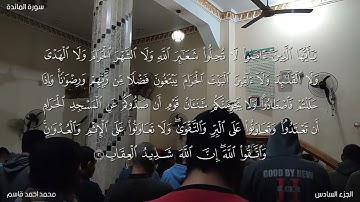 سورة المائدة
يَٰٓأَيُّهَا ٱلَّذِينَ ءَامَنُوا۟ لَا تُحِلُّوا۟ شَعَٰٓئِرَ ٱللَّهِ وَلَا ٱلشَّهْرَ ٱلْحَرَامَ وَلَا ٱلْهَدْىَ
وَلَا ٱلْقَلَٰٓئِدَ وَلَآ ءَآمِّينَ ٱلْبَيْتَ ٱلْحَرَامَ يَبْتَغُونَ فَضْلًا مِّن رَّبِّهِمْ وَرِضْوَٰنًا وَإِذَا
حَلَلْتُمْ فَٱصْطَادُوا۟ وَلَا يَجْرِمَنَّكُمْ شَنَـَٔانُ قَوْمٍ أَن صَدُّوكُمْ عَنِ ٱلْمَسْجِدِ ٱلْحَرَامِ
أَن تَعْتَدُوا۟ وَتَعَاوَنُوا۟ عَلَى ٱلْبِرِّ وَٱلتَّقْوَىٰ وَلَا تَعَاوَنُوا۟ عَلَى ٱلْإِثْمِ وَٱلْعُدْوَٰنِ
وَٱتَّقُوا۟ ٱللَّهَ إِنَّ ٱللَّهَ شَدِيدُ ٱلْعِقَابِ ٢
GOOD BOY
NEEDS
محمد احمد قاسم
الجزء السادس